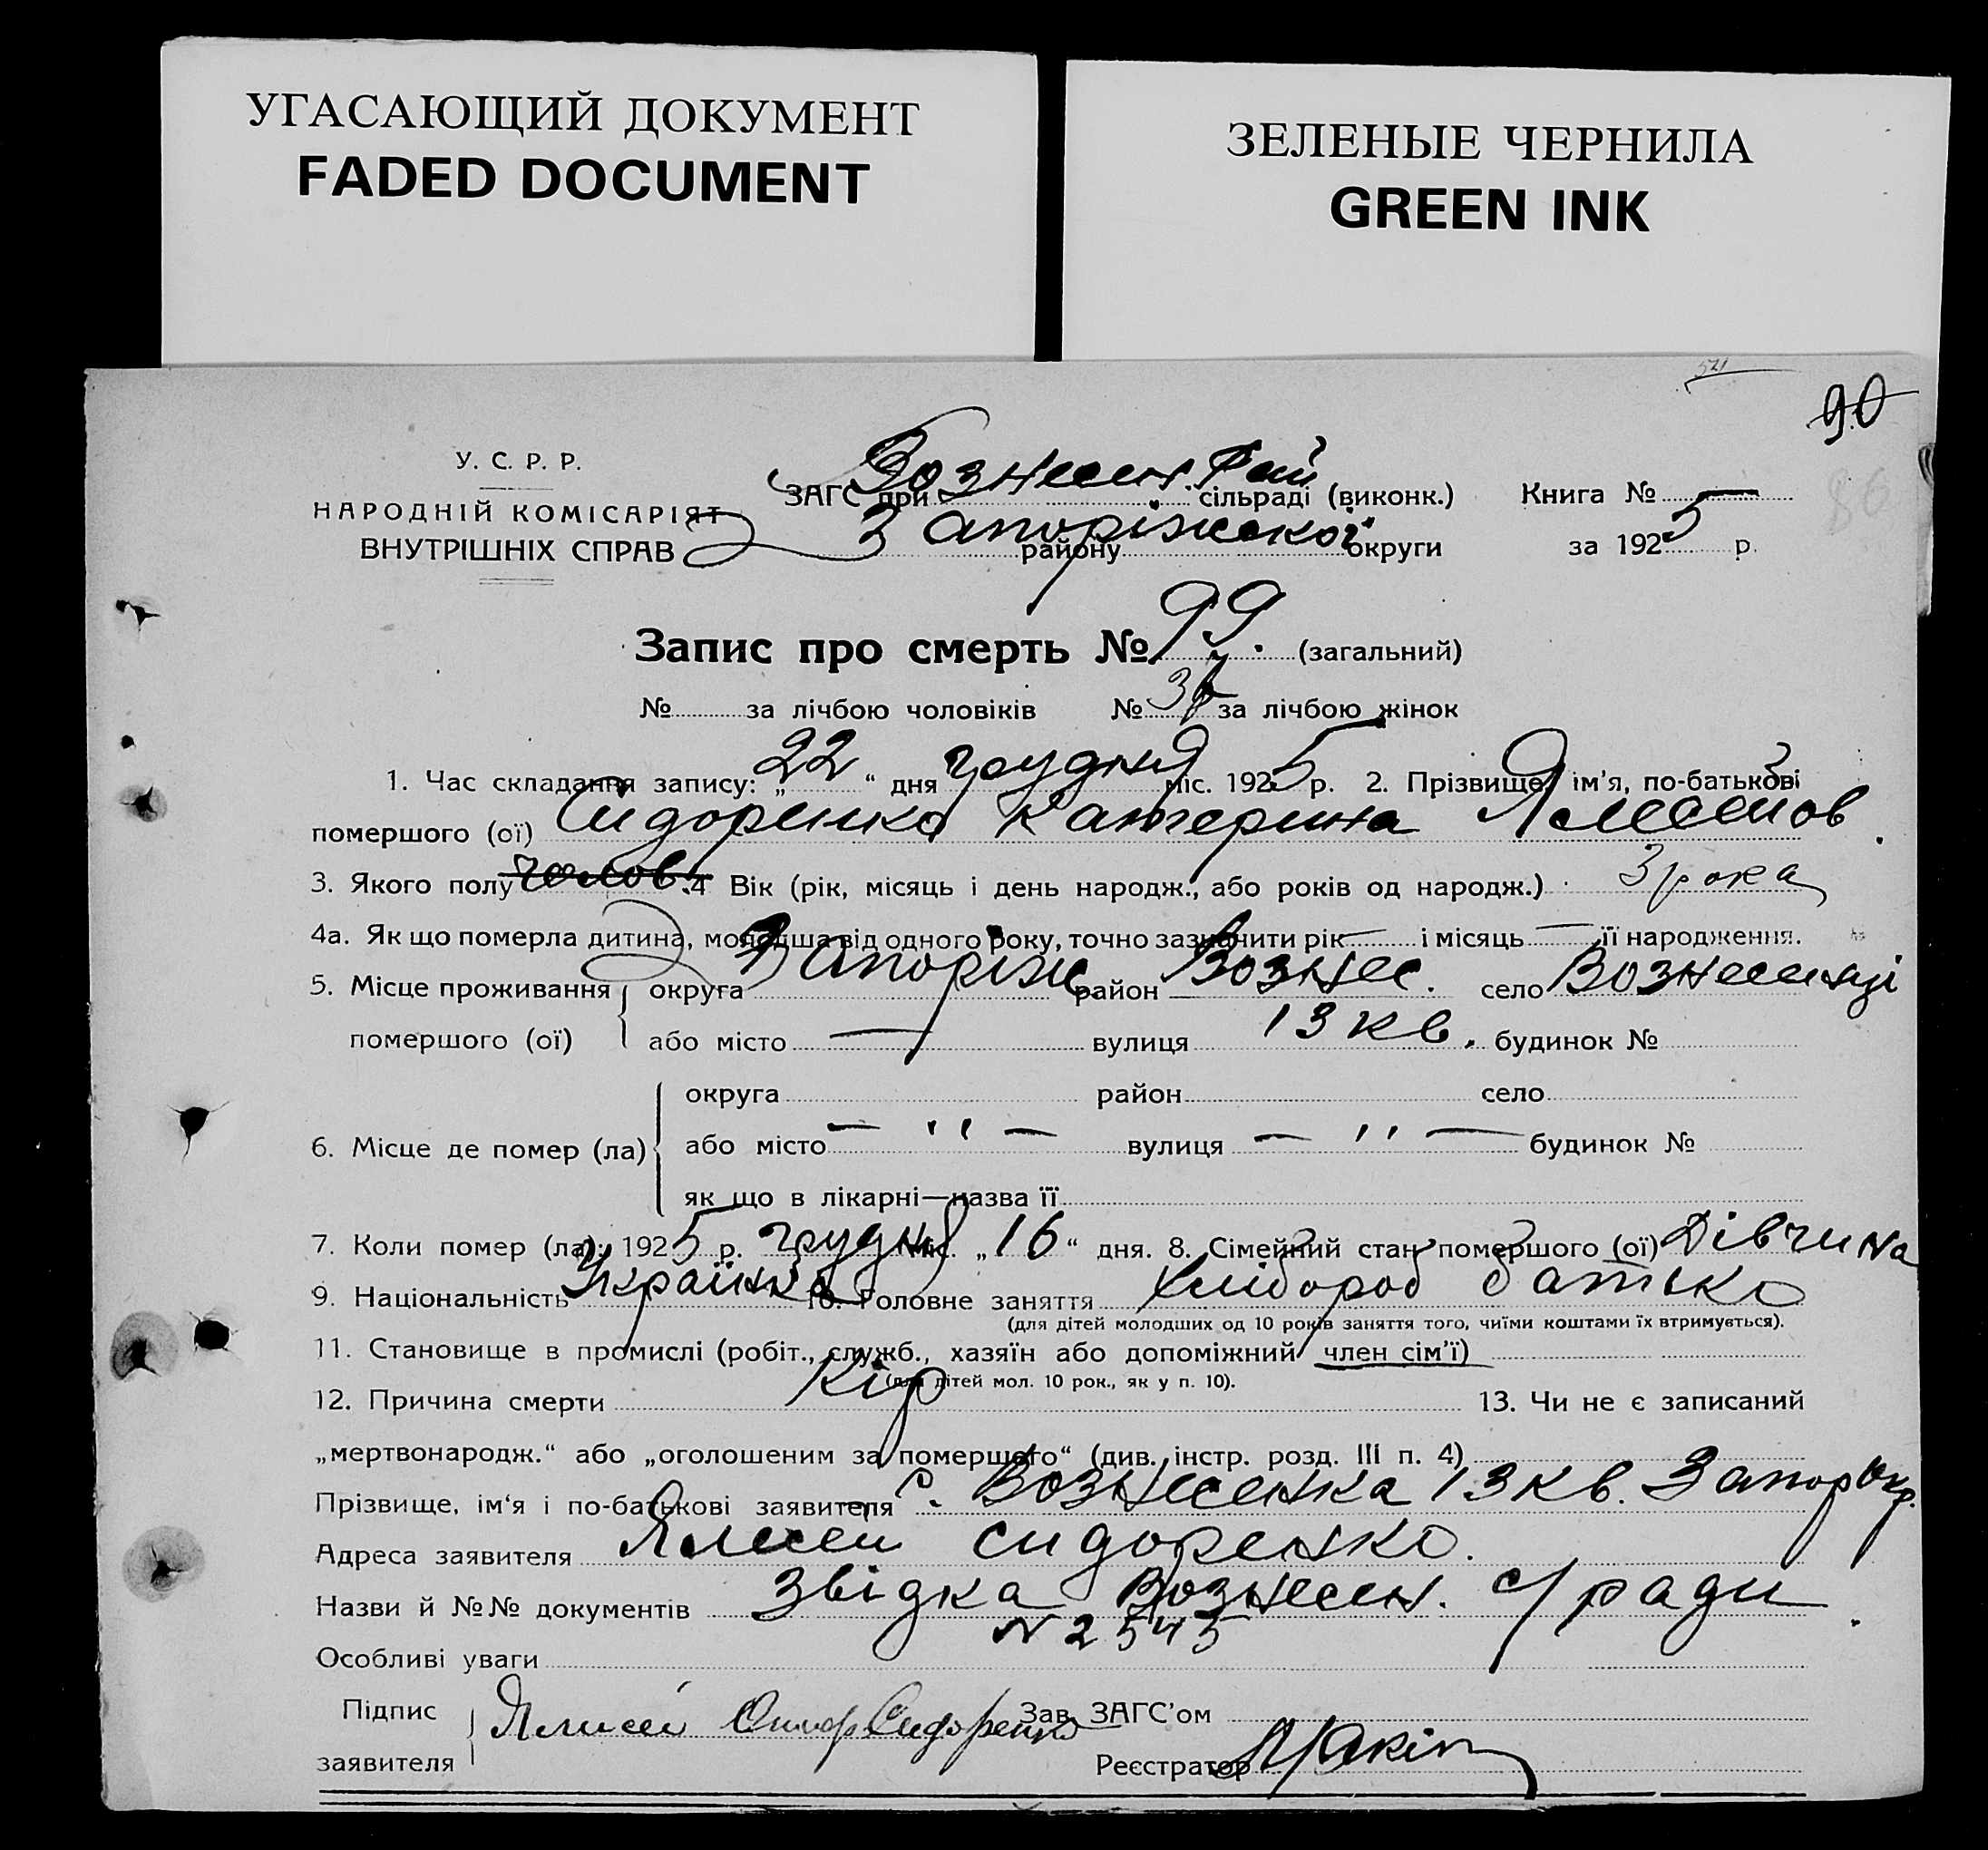 УГАСАЮЩИЙ ДОКУМЕНТ
FADED DOCUMENT
ЗЕЛЕНЫЕ ЧЕРНИЛА
GREEN INK
521
90
86
У. С. Р. Р.
НАРОДНІЙ КОМІСАРІЯТ
ВНУТРІШНІХ СПРАВ
ЗАГС при Вознесен. Рай сільраді (виконк.) Книга № —
району Запоріжської округи за 1925 р.
Запис про смерть № 99. (загальний)
№ за лічбою чоловіків № за лічбою жінок
1. Час складання запису: „22“ дня грудня міс. 1925 р. 2. Прізвище, ім'я, по-батькові
помершого (ої) Сидоренко Катерина
3. Якого полу чолов. 4 Вік (рік, місяць і день народж., або років од народж.) 3 рока
4а. Як що померла дитина, молодша від одного року, точно зазначити рік — і місяць — її народження.
5. Місце проживання округа Запоріж. район Вознес. село Вознесенці
помершого (ої) або місто — вулиця 13 кв. будинок №
округа район село
6. Місце де помер (ла) або місто — ,, — вулиця — ,, — будинок №
як що в лікарні—назва її
7. Коли помер (ла): 1925 р. грудня міс. „16“ дня. 8. Сімейний стан помершого (ої) Дівчина
9. Національність Українка 10. Головне заняття Хлібороб батько
(для дітей молодших од 10 років заняття того, чиїми коштами їх втримується).
11. Становище в промислі (робіт., служб., хазяїн або допоміжний член сім'ї)
(для дітей мол. 10 рок., як у п. 10).
12. Причина смерти Кір 13. Чи не є записаний
„мертвонародж.“ або „оголошеним за помершого“ (див. інстр. розд. III п. 4)
Прізвище, ім'я і по-батькові заявителя с. Вознесенка 13 кв. Запор Окр.
Адреса заявителя Сидоренко.
Назви й №№ документів Звідка Вознесен. с/ради.
N 2545
Особливі уваги
Підпис Сидоренко Зав. ЗАГС'ом
заявителя Реєстратор